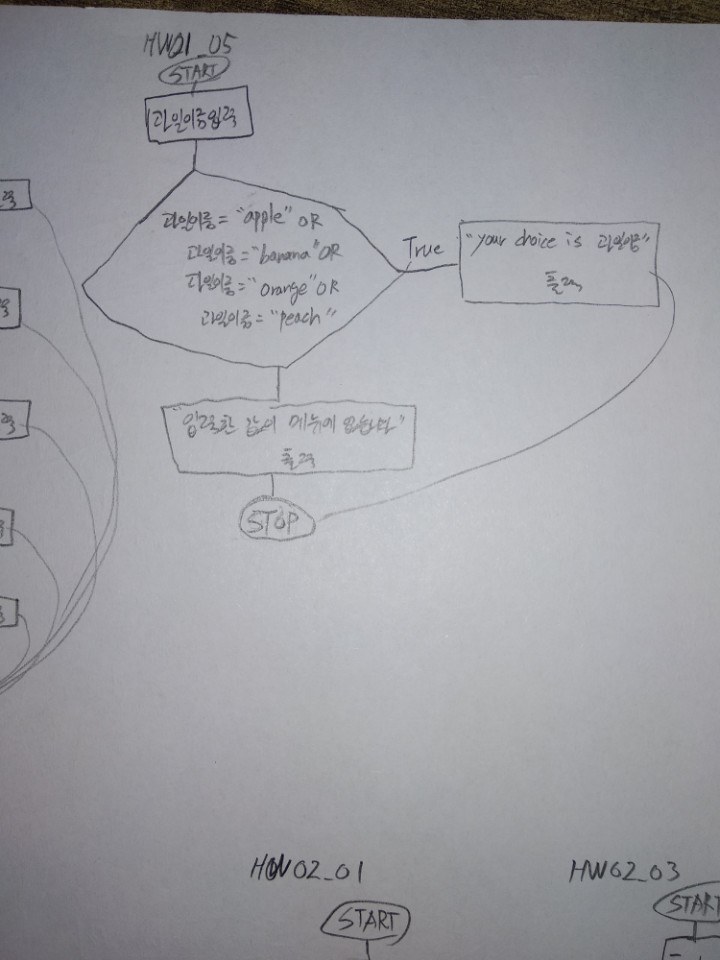 HW01_05
START
과일이름입력
과일이름 = "apple" OR
과일이름 = "banana" OR
과일이름 = "orange" OR
과일이름 = "peach"
True
"your choice is 과일이름"
출력
"입력한 값이 메뉴에 없습니다"
출력
STOP
HW02_01
START
HW02_03
START